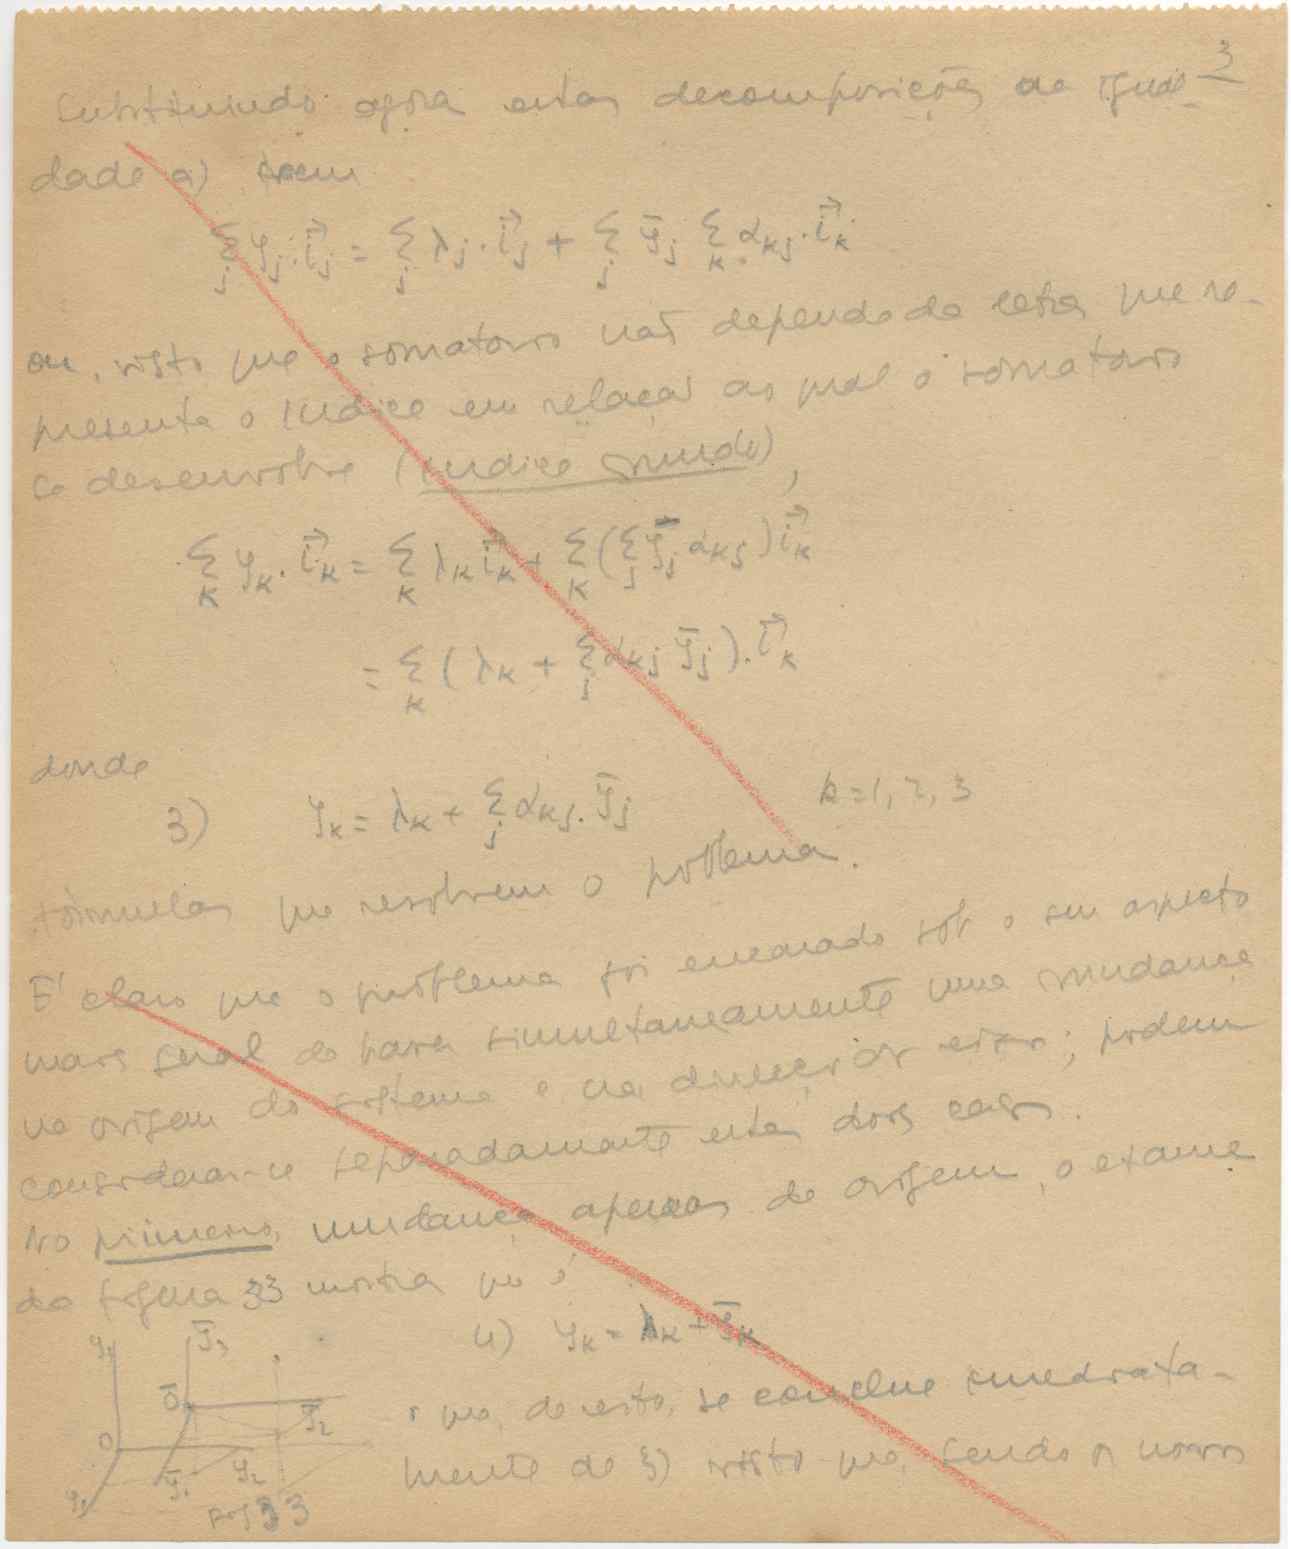 3
Substituindo agora estas decomposições na igual-
dade a) vem
∑_j y_j . i⃗_j = ∑_j λ_j . i⃗_j + ∑_j ȳ_j ∑_k α_kj . i⃗_k
ou, visto que o somatorio não depende da letra que re-
presenta o indice em relação ao qual o somatorio
se desenvolve (indice mudo),
∑_k y_k . i⃗_k = ∑_k λ_k i⃗_k + ∑_k (∑_j ȳ_j α_kj) i⃗_k
= ∑_k (λ_k + ∑_j α_kj ȳ_j) . i⃗_k
donde
3) y_k = λ_k + ∑_j α_kj . ȳ_j k = 1, 2, 3
fórmulas que resolvem o problema.
É claro que o problema foi encarado sob o seu aspecto
mais geral de haver simultaneamente uma mudança
na origem do sistema e na direcção dos eixos; podem
considerar-se separadamente estes dois casos.
No primeiro, mudança apenas de origem, o exame
da figura 33 mostra que é
4) y_k = λ_k + ȳ_k
o que, de resto, se conclue imediata-
mente de 3) visto que, sendo os novos
y_3 ȳ_3
Ō ȳ_2
O y_2
ȳ_1
y_1
Fig 33